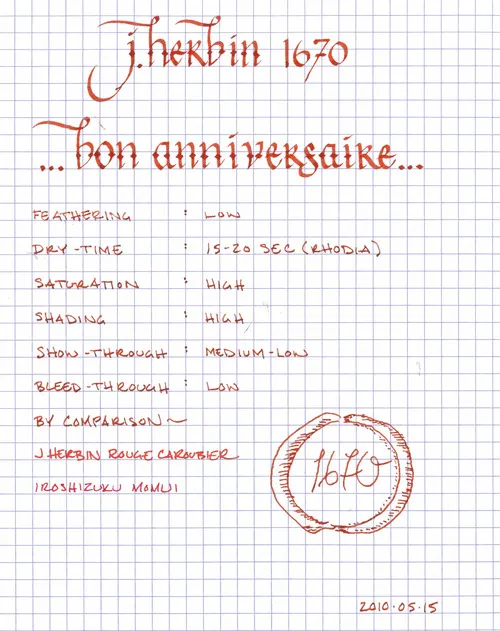 j.herbin 1670
...bon anniversaire...
FEATHERING : LOW
DRY-TIME : 15-20 SEC (RHODIA)
SATURATION : HIGH
SHADING : HIGH
SHOW-THROUGH : MEDIUM-LOW
BLEED-THROUGH : LOW
BY COMPARISON~
J HERBIN ROUGE CAROUBIER
IROSHIZUKU MOMIJI
1670
2010·05·15